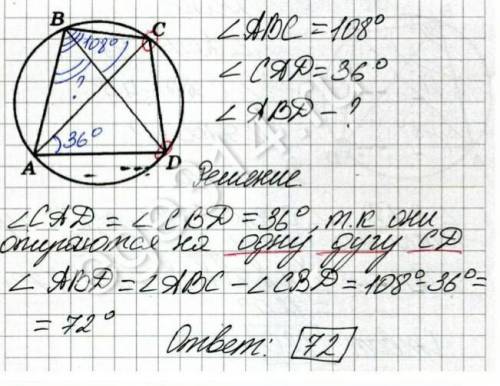 B
C
108°
?
36°
A
D
∠ABC = 108°
∠CAD = 36°
∠ABD - ?
Решение
∠CAD = ∠CBD = 36°, т.к они
опираются на одну дугу CD
∠ABD = ∠ABC - ∠CBD = 108° - 36° =
= 72°
Ответ: 72